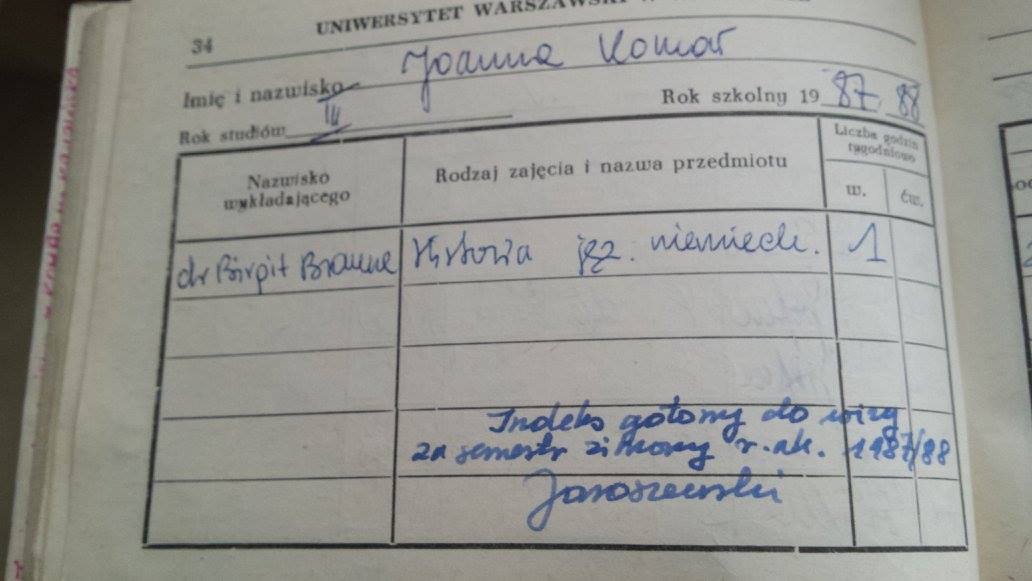 34
UNIWERSYTET WARSZAWSKI
Imię i nazwisko Joanna Komar
Rok szkolny 1987/88
Rok studiów III
Nazwisko wykładającego
Rodzaj zajęcia i nazwa przedmiotu
Liczba godzin tygodniowo
w. ćw.
dr Birgit Braune Historia jęz. niemieck. 1
Indeks gotowy do wizy
za semestr zimowy r.ak. 1987/88
Jaroszewski